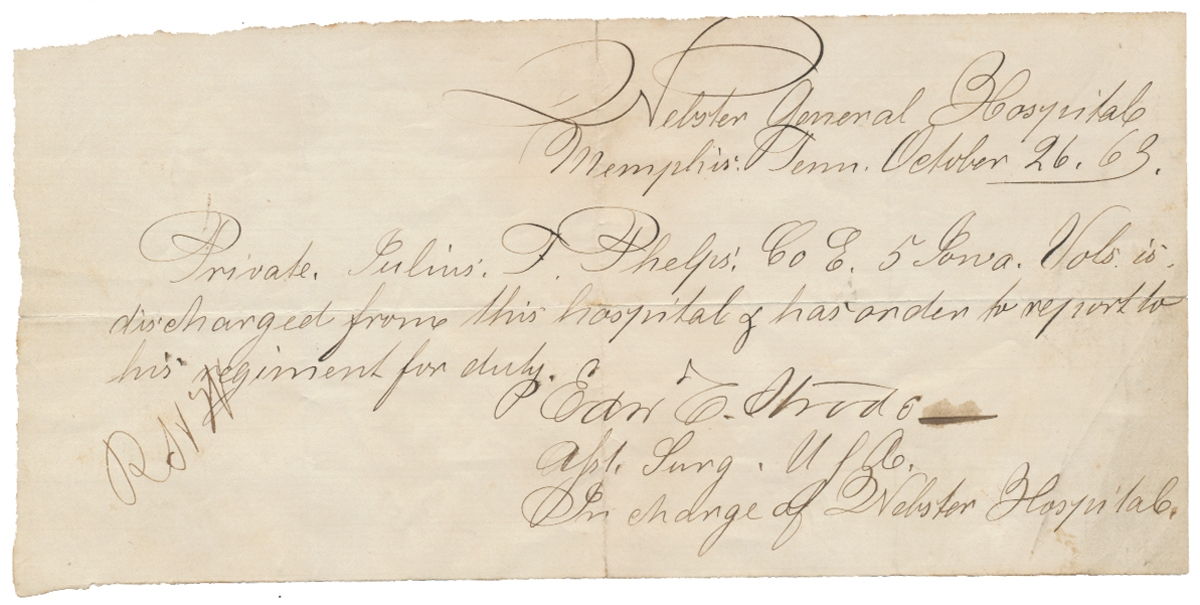 Webster General Hospital
Memphis. Tenn. October 26. 63.
Private. Julius. T. Phelps. Co E. 5 Iowa. Vols. is.
discharged from this hospital & has order to report to
his regiment for duty.
Edw E. Strode
Asst. Surg. U S A.
In charge of Webster Hospital.